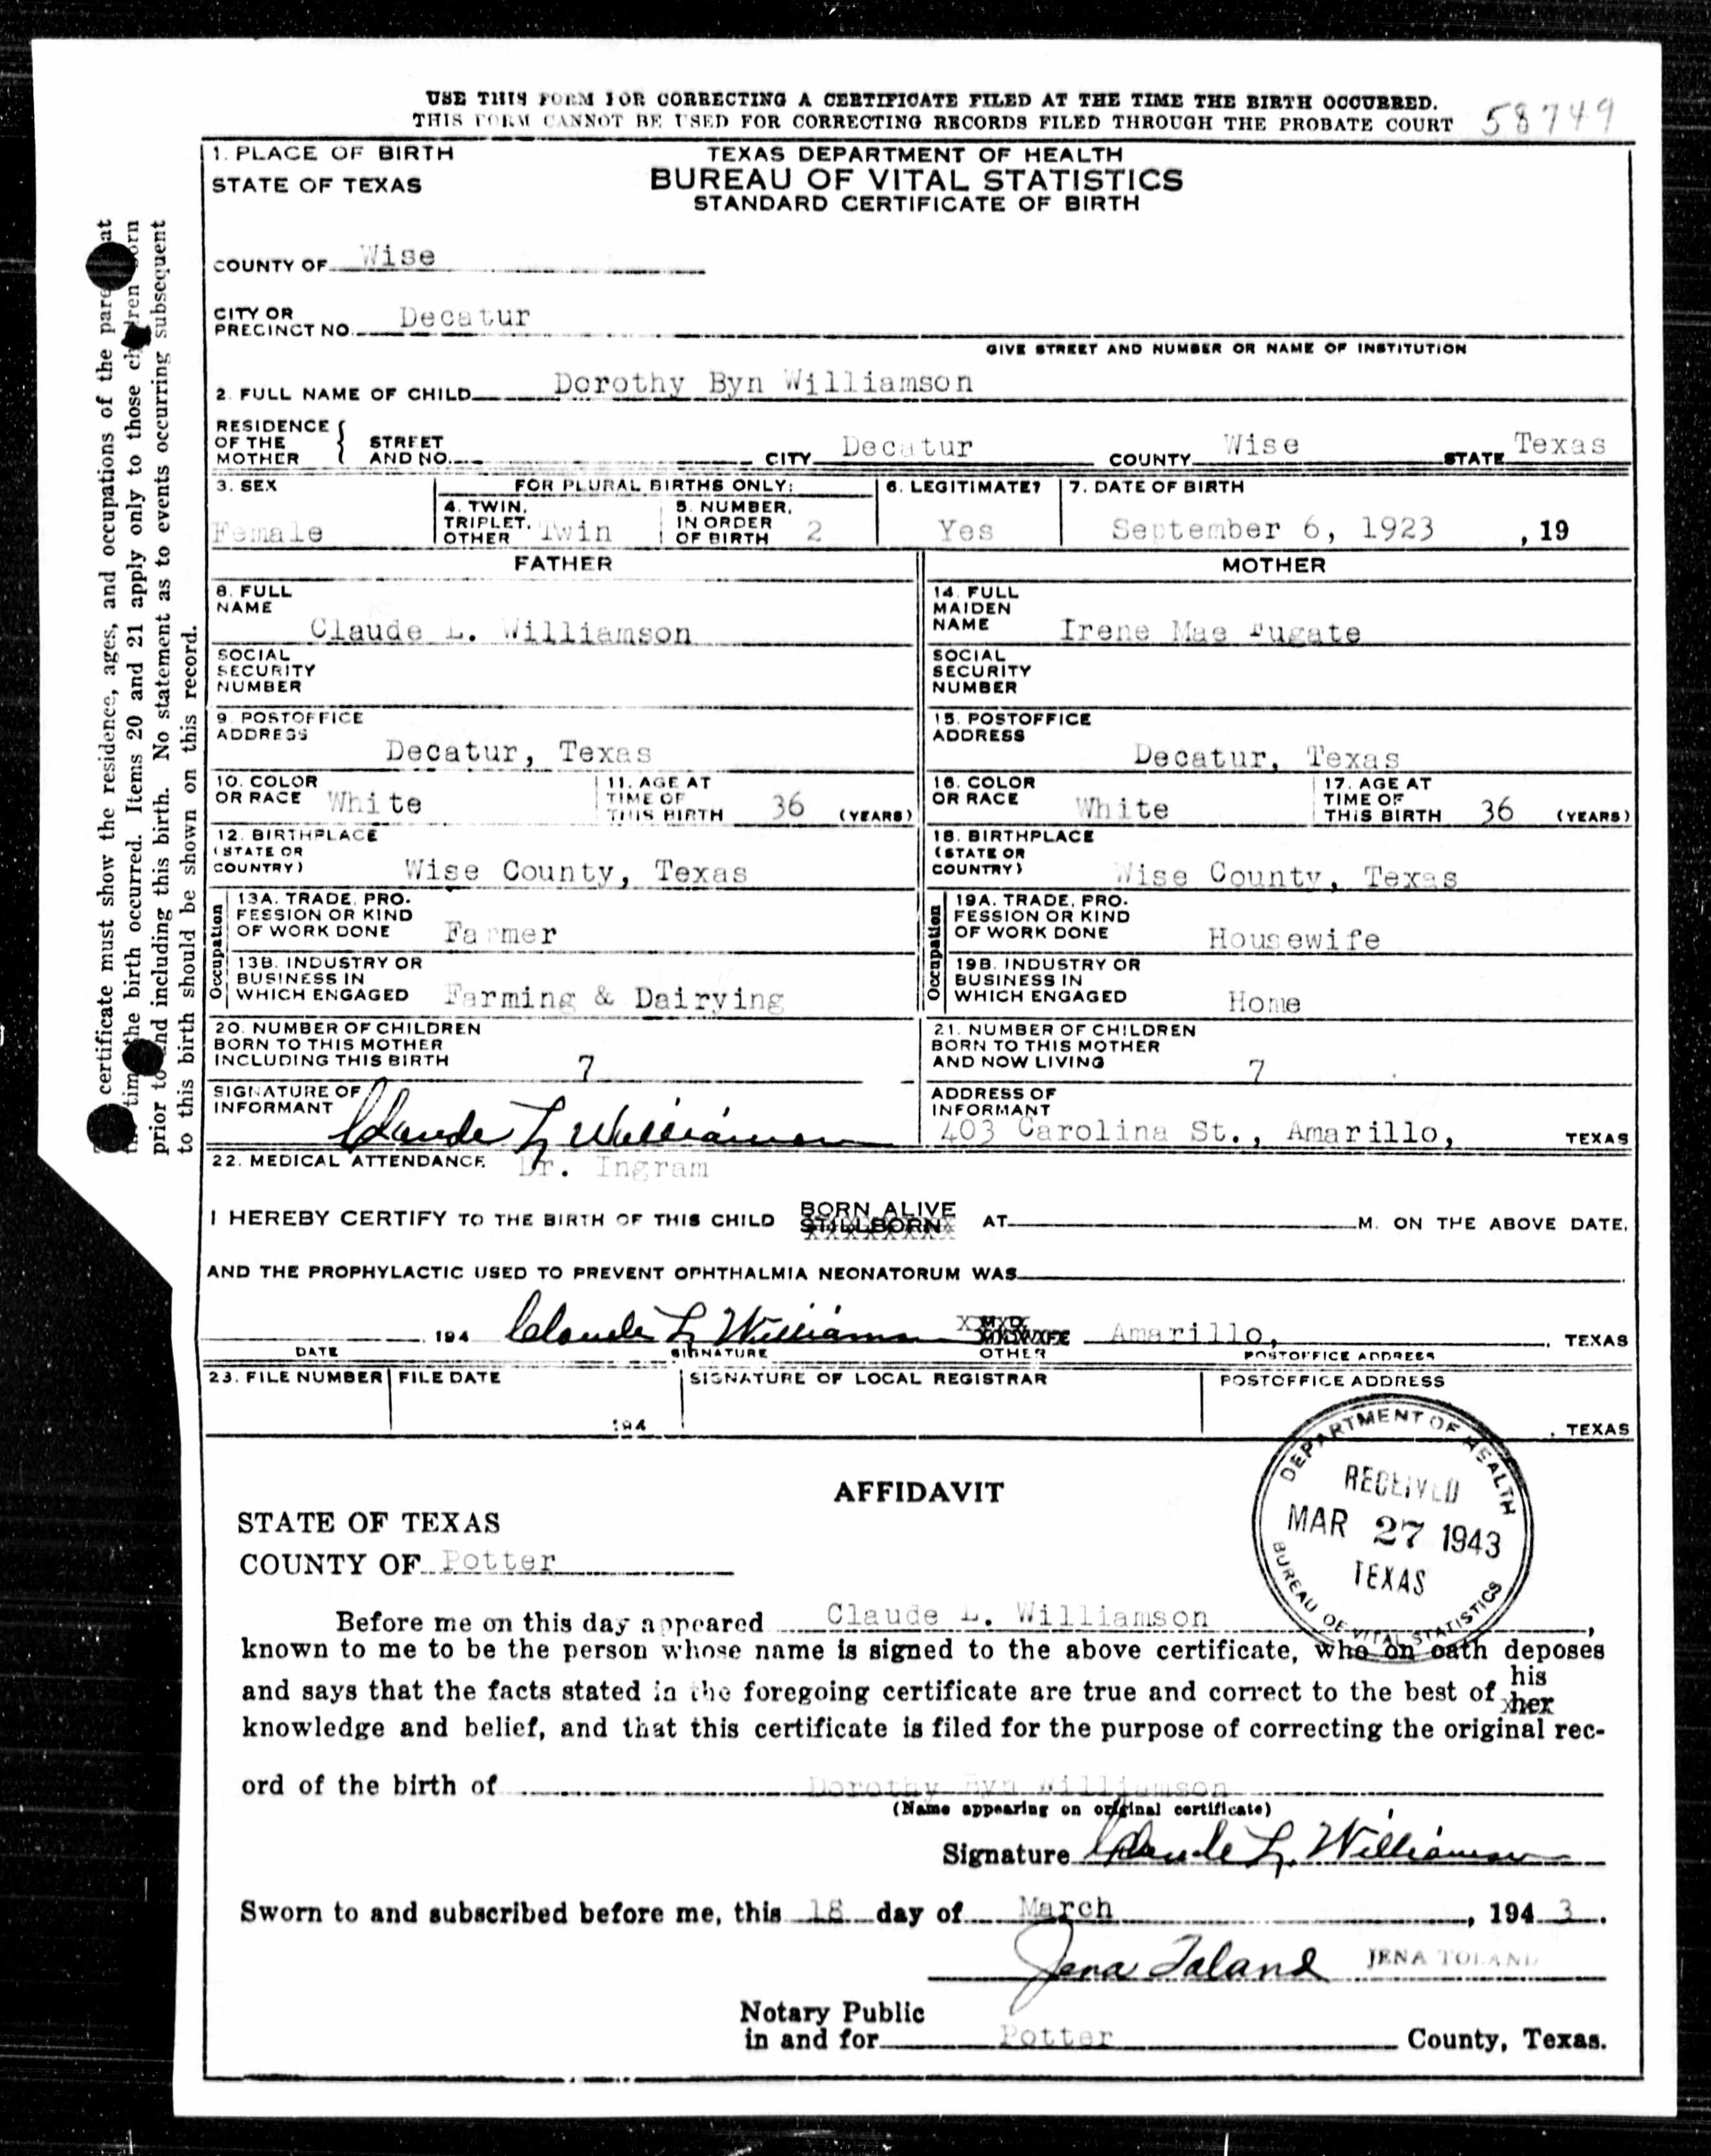 USE THIS FORM FOR CORRECTING A CERTIFICATE FILED AT THE TIME THE BIRTH OCCURRED.
THIS FORM CANNOT BE USED FOR CORRECTING RECORDS FILED THROUGH THE PROBATE COURT
58749
certificate must show the residence, ages, and occupations of the parents at
the time the birth occurred. Items 20 and 21 apply only to those children born
prior to and including this birth. No statement as to events occurring subsequent
to this birth should be shown on this record.
1. PLACE OF BIRTH
STATE OF TEXAS
TEXAS DEPARTMENT OF HEALTH
BUREAU OF VITAL STATISTICS
STANDARD CERTIFICATE OF BIRTH
COUNTY OF Wise
CITY OR
PRECINCT NO. Decatur
GIVE STREET AND NUMBER OR NAME OF INSTITUTION
2. FULL NAME OF CHILD Dorothy Byn Williamson
RESIDENCE
OF THE
MOTHER
STREET
AND NO.
CITY Decatur COUNTY Wise STATE Texas
3. SEX
Female
FOR PLURAL BIRTHS ONLY:
4. TWIN,
TRIPLET,
OTHER Twin
5. NUMBER,
IN ORDER
OF BIRTH 2
6. LEGITIMATE?
Yes
7. DATE OF BIRTH
September 6, 1923 , 19
FATHER
8. FULL
NAME
Claude L. Williamson
SOCIAL
SECURITY
NUMBER
9. POSTOFFICE
ADDRESS
Decatur, Texas
10. COLOR
OR RACE White
11. AGE AT
TIME OF
THIS BIRTH 36 (YEARS)
12. BIRTHPLACE
(STATE OR
COUNTRY) Wise County, Texas
Occupation
13A. TRADE, PRO-
FESSION OR KIND
OF WORK DONE Farmer
13B. INDUSTRY OR
BUSINESS IN
WHICH ENGAGED Farming & Dairying
MOTHER
14. FULL
MAIDEN
NAME Irene Mae Fugate
SOCIAL
SECURITY
NUMBER
15. POSTOFFICE
ADDRESS
Decatur, Texas
16. COLOR
OR RACE White
17. AGE AT
TIME OF
THIS BIRTH 36 (YEARS)
18. BIRTHPLACE
(STATE OR
COUNTRY) Wise County, Texas
Occupation
19A. TRADE, PRO-
FESSION OR KIND
OF WORK DONE Housewife
19B. INDUSTRY OR
BUSINESS IN
WHICH ENGAGED Home
20. NUMBER OF CHILDREN
BORN TO THIS MOTHER
INCLUDING THIS BIRTH 7
21. NUMBER OF CHILDREN
BORN TO THIS MOTHER
AND NOW LIVING 7
SIGNATURE OF
INFORMANT Claude L Williamson
ADDRESS OF
INFORMANT
403 Carolina St., Amarillo, TEXAS
22. MEDICAL ATTENDANCE Dr. Ingram
I HEREBY CERTIFY TO THE BIRTH OF THIS CHILD BORN ALIVE
STILLBORN AT M. ON THE ABOVE DATE,
AND THE PROPHYLACTIC USED TO PREVENT OPHTHALMIA NEONATORUM WAS
194 Claude L Williamson Amarillo, TEXAS
DATE SIGNATURE OTHER POSTOFFICE ADDRESS
23. FILE NUMBER FILE DATE SIGNATURE OF LOCAL REGISTRAR POSTOFFICE ADDRESS
194 , TEXAS
DEPARTMENT OF HEALTH
RECEIVED
MAR 27 1943
TEXAS
BUREAU OF VITAL STATISTICS
AFFIDAVIT
STATE OF TEXAS
COUNTY OF Potter
Before me on this day appeared Claude L. Williamson,
known to me to be the person whose name is signed to the above certificate, who on oath deposes
and says that the facts stated in the foregoing certificate are true and correct to the best of his
her
knowledge and belief, and that this certificate is filed for the purpose of correcting the original rec-
ord of the birth of Dorothy Byn Williamson
(Name appearing on original certificate)
Signature Claude L. Williamson
Sworn to and subscribed before me, this 18 day of March, 1943.
Jena Toland JENA TOLAND
Notary Public
in and for Potter County, Texas.